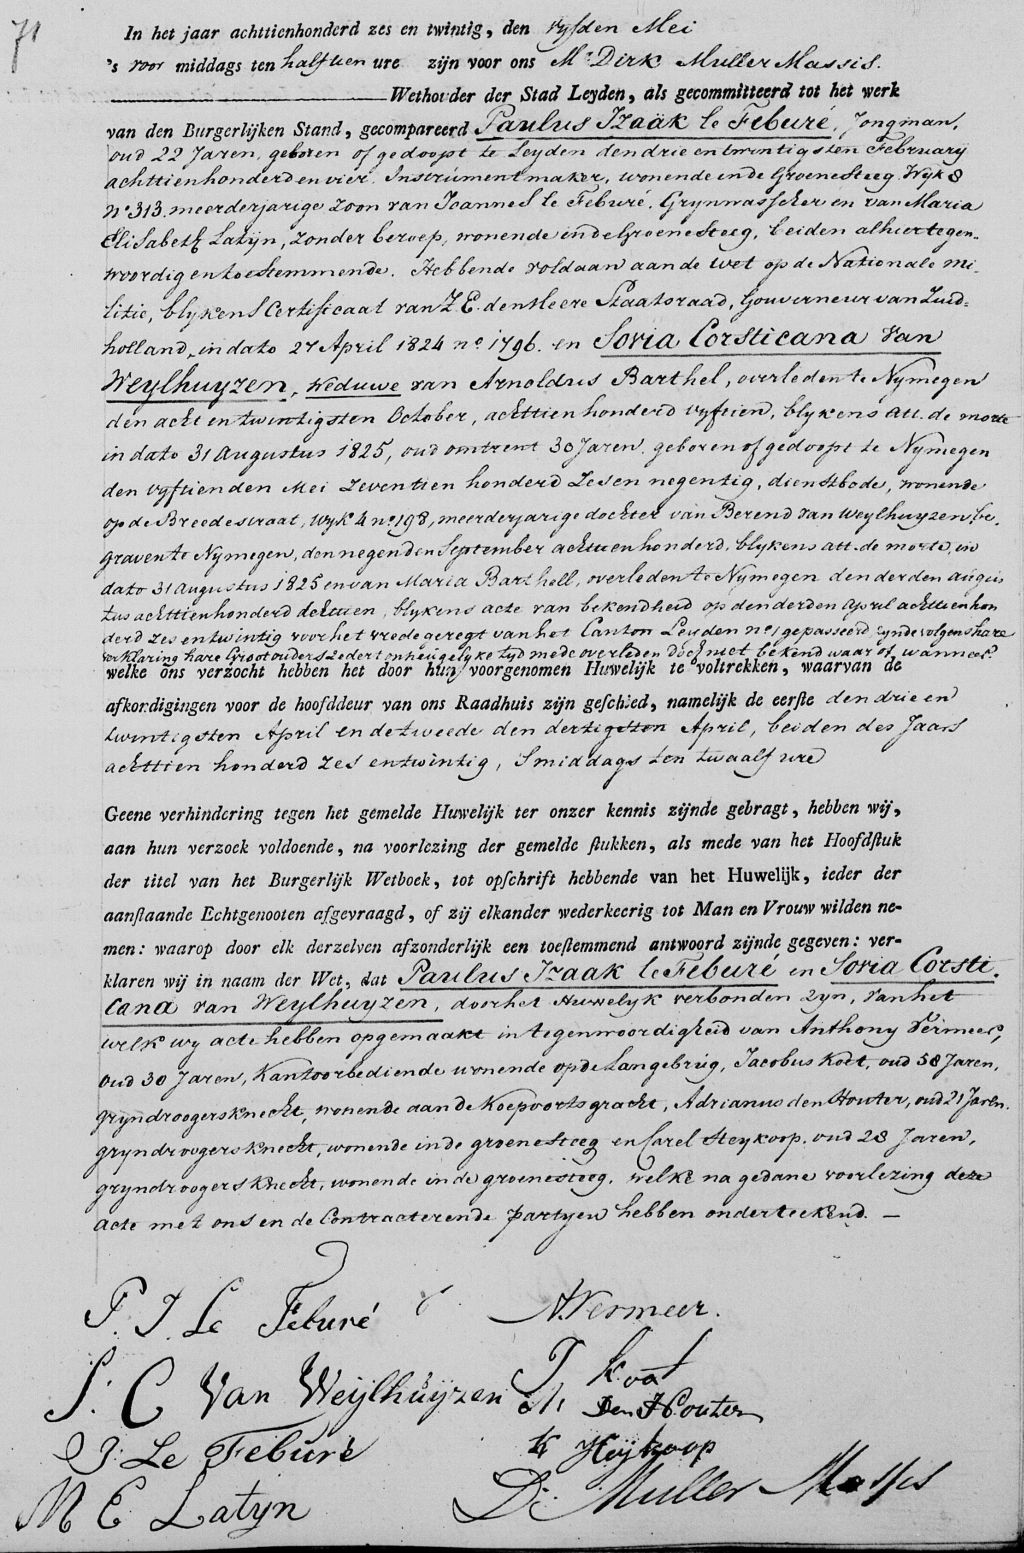 71
In het jaar achttienhonderd zes en twintig, den vyfden Mei
's voor middags ten half tien ure zijn voor ons Mr Dirk Muller Massis.
Wethouder der Stad Leyden, als gecommitteerd tot het werk
van den Burgerlijken Stand, gecompareerd Paulus Izaäk le Feburé, Jongman,
oud 22 Jaren, geboren of gedoopt te Leyden den drie en twintigsten February
achttienhonderd en vier. Instrumentmaker, wonende in de Groenesteeg. Wyk 8
no 313. meerderjarige zoon van Joannes le Feburé, Grynwasscher en van Maria
Elisabeth Latyn, zonder beroep, wonende in de Groenesteeg, beiden alhier tegen-
woordig en toestemmende. Hebbende voldaan aan de wet op de Nationale mi-
litie, blykens Certificaat van Z.E. den Heere Staatsraad, Gouverneur van Zuid-
holland, in dato 27 April 1824 no 1796. en Sovia Corsticana van
Weylhuyzen, Weduwe van Arnoldus Barthel, overleden te Nymegen
den acht en twintigsten October, achttien honderd vyftien, blykens att. de morte
in dato 31 Augustus 1825, oud omtrent 30 Jaren. geboren of gedoopt te Nymegen
den vyftienden Mei Zeventien honderd Zes en negentig, dienstbode, wonende
op de Breedestraat, wyk 4 no 198, meerderjarige dochter van Berend van Weylhuyzen, be-
graven te Nymegen, den negenden September achttienhonderd, blykens att. de morte, in
dato 31 Augustus 1825 en van Maria Barthell, overleden te Nymegen den derden augus
tus achttienhonderd achttien, blykens acte van bekendheid op den derden April achttienhon
derd zes en twintig voor het vredegeregt van het Canton Leyden no 1 gepasseerd zynde volgens hare
verklaring hare Grootouders zedert onheugelyke tyd mede overleden doch niet bekend waar of wanneer.
welke ons verzocht hebben het door hun voorgenomen Huwelijk te voltrekken, waarvan de
afkondigingen voor de hoofddeur van ons Raadhuis zijn geschied, namelijk de eerste den drie en
twintigsten April en de tweede den dertigsten April, beiden des Jaars
achttien honderd zes en twintig, smiddags ten twaalf ure
Geene verhindering tegen het gemelde Huwelijk ter onzer kennis zijnde gebragt, hebben wij,
aan hun verzoek voldoende, na voorlezing der gemelde stukken, als mede van het Hoofdstuk
der titel van het Burgerlijk Wetboek, tot opschrift hebbende van het Huwelijk, ieder der
aanstaande Echtgenooten afgevraagd, of zij elkander wederkeerig tot Man en Vrouw wilden ne-
men: waarop door elk derzelven afzonderlijk een toestemmend antwoord zijnde gegeven: ver-
klaren wij in naam der Wet, dat Paulus Izaak le Feburé en Sovia Corsti-
cana van Weylhuyzen, door het Huwelyk verbonden zyn, van het
welk wy acte hebben opgemaakt in tegenwoordigheid van Anthony Vermeer,
oud 30 Jaren, Kantoorbediende wonende op de Langebrug, Jacobus Koet, oud 58 Jaren,
gryndroogersknecht, wonende aan de Koepoortsgracht, Adrianus den Houter, oud 21 Jaren.
gryndroogersknecht, wonende in de groenesteeg en Carel Heykoop, oud 28 Jaren,
gryndroogersknecht, wonende in de groenesteeg. Welke na gedane voorlezing deze
acte met ons en de Contracterende partyen hebben onderteekend. —
P. I. Le Feburé
A. Vermeer.
S. C Van Weijlhuijzen
J Koot
Den Houter
J. Le Feburé
K Heijkoop
M E Latyn
D: Muller Massis